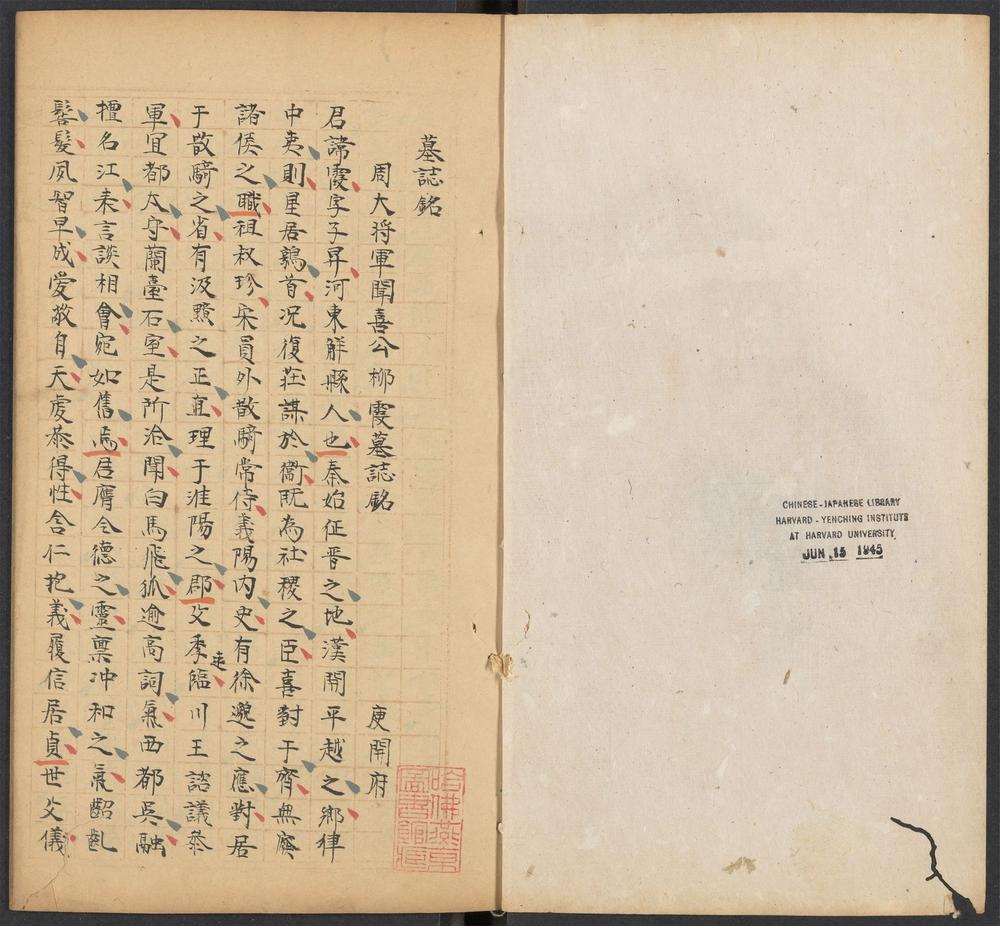 墓誌銘
周大将軍聞喜公柳霞墓誌銘 庾開府
君諱霞字子昇河東解縣人也秦始征晋之地漢開平越之鄉律
中夷則星居鶉首况復莊謀於衛既為社稷之臣喜對于齊無廢
諸侯之職祖叔珍宋員外散騎常侍義陽内史有徐邈之應對居
于散騎之省有汲黯之正直理于淮陽之郡父季遠臨川王諮議叅
軍宜都太守蘭臺石室是所洽聞白馬飛狐逾高詞氣西都吳融
擅名江表言談相會宛如舊焉君膺令德之靈禀冲和之氣齠齓
髫髮夙智早成愛敬自天虔恭得性含仁抱義履信居貞世父儀
哈佛燕京圖書館藏
CHINESE-JAPANESE LIBRARY
HARVARD-YENCHING INSTITUTE
AT HARVARD UNIVERSITY
JUN 15 1945